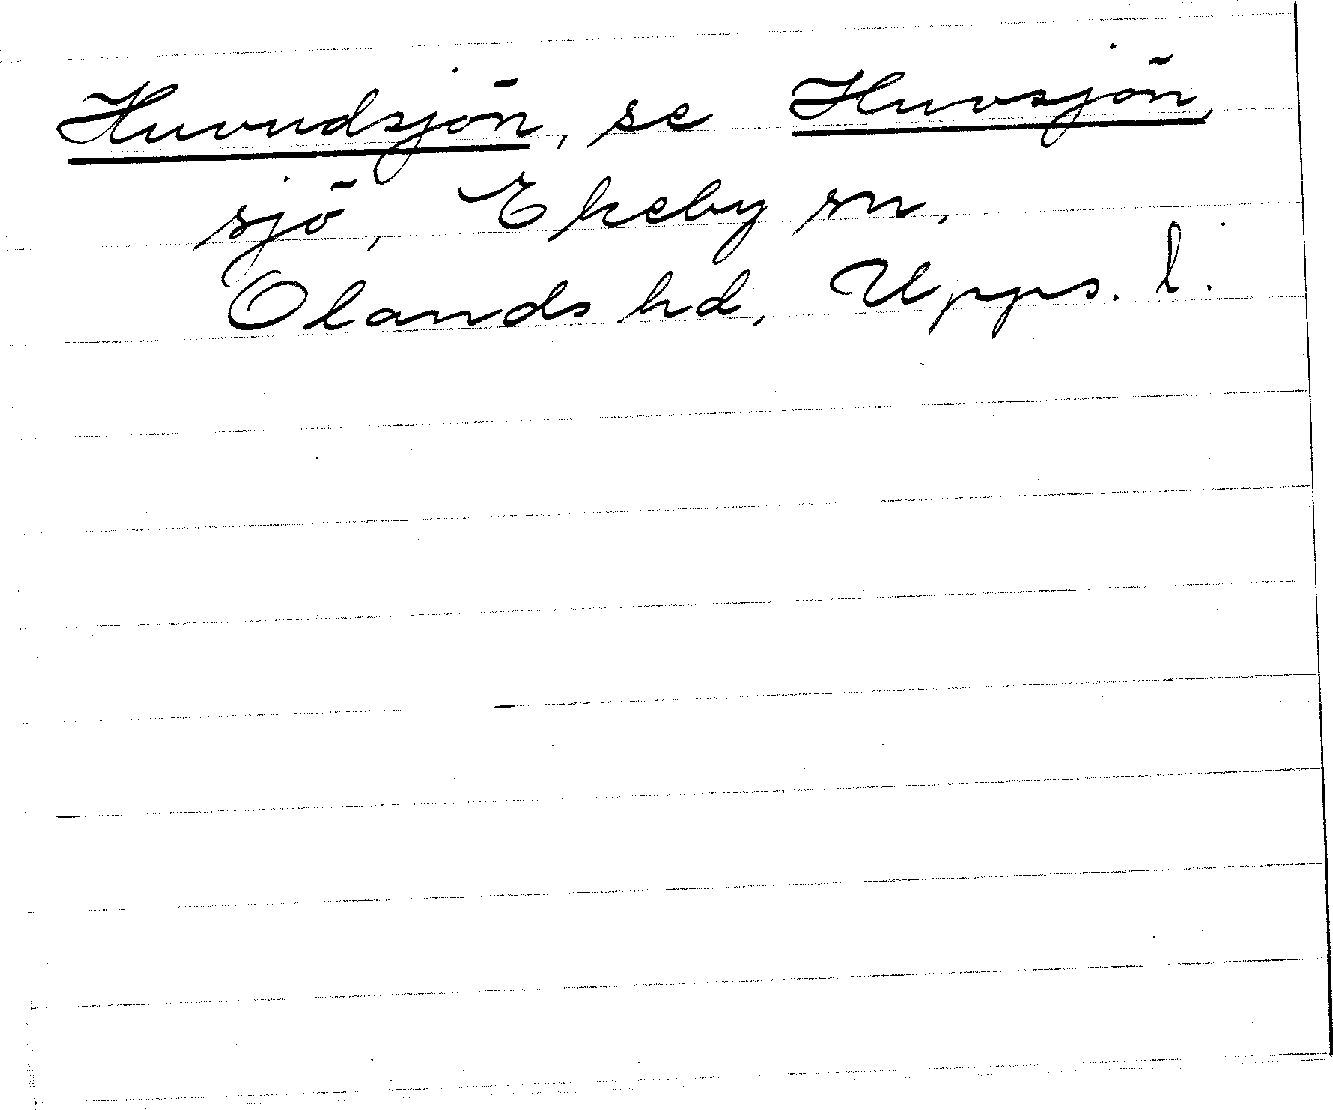 Huvudsjön, se Huvsjön,
sjö, Ekeby sn,
Olands hd, Upps. l.